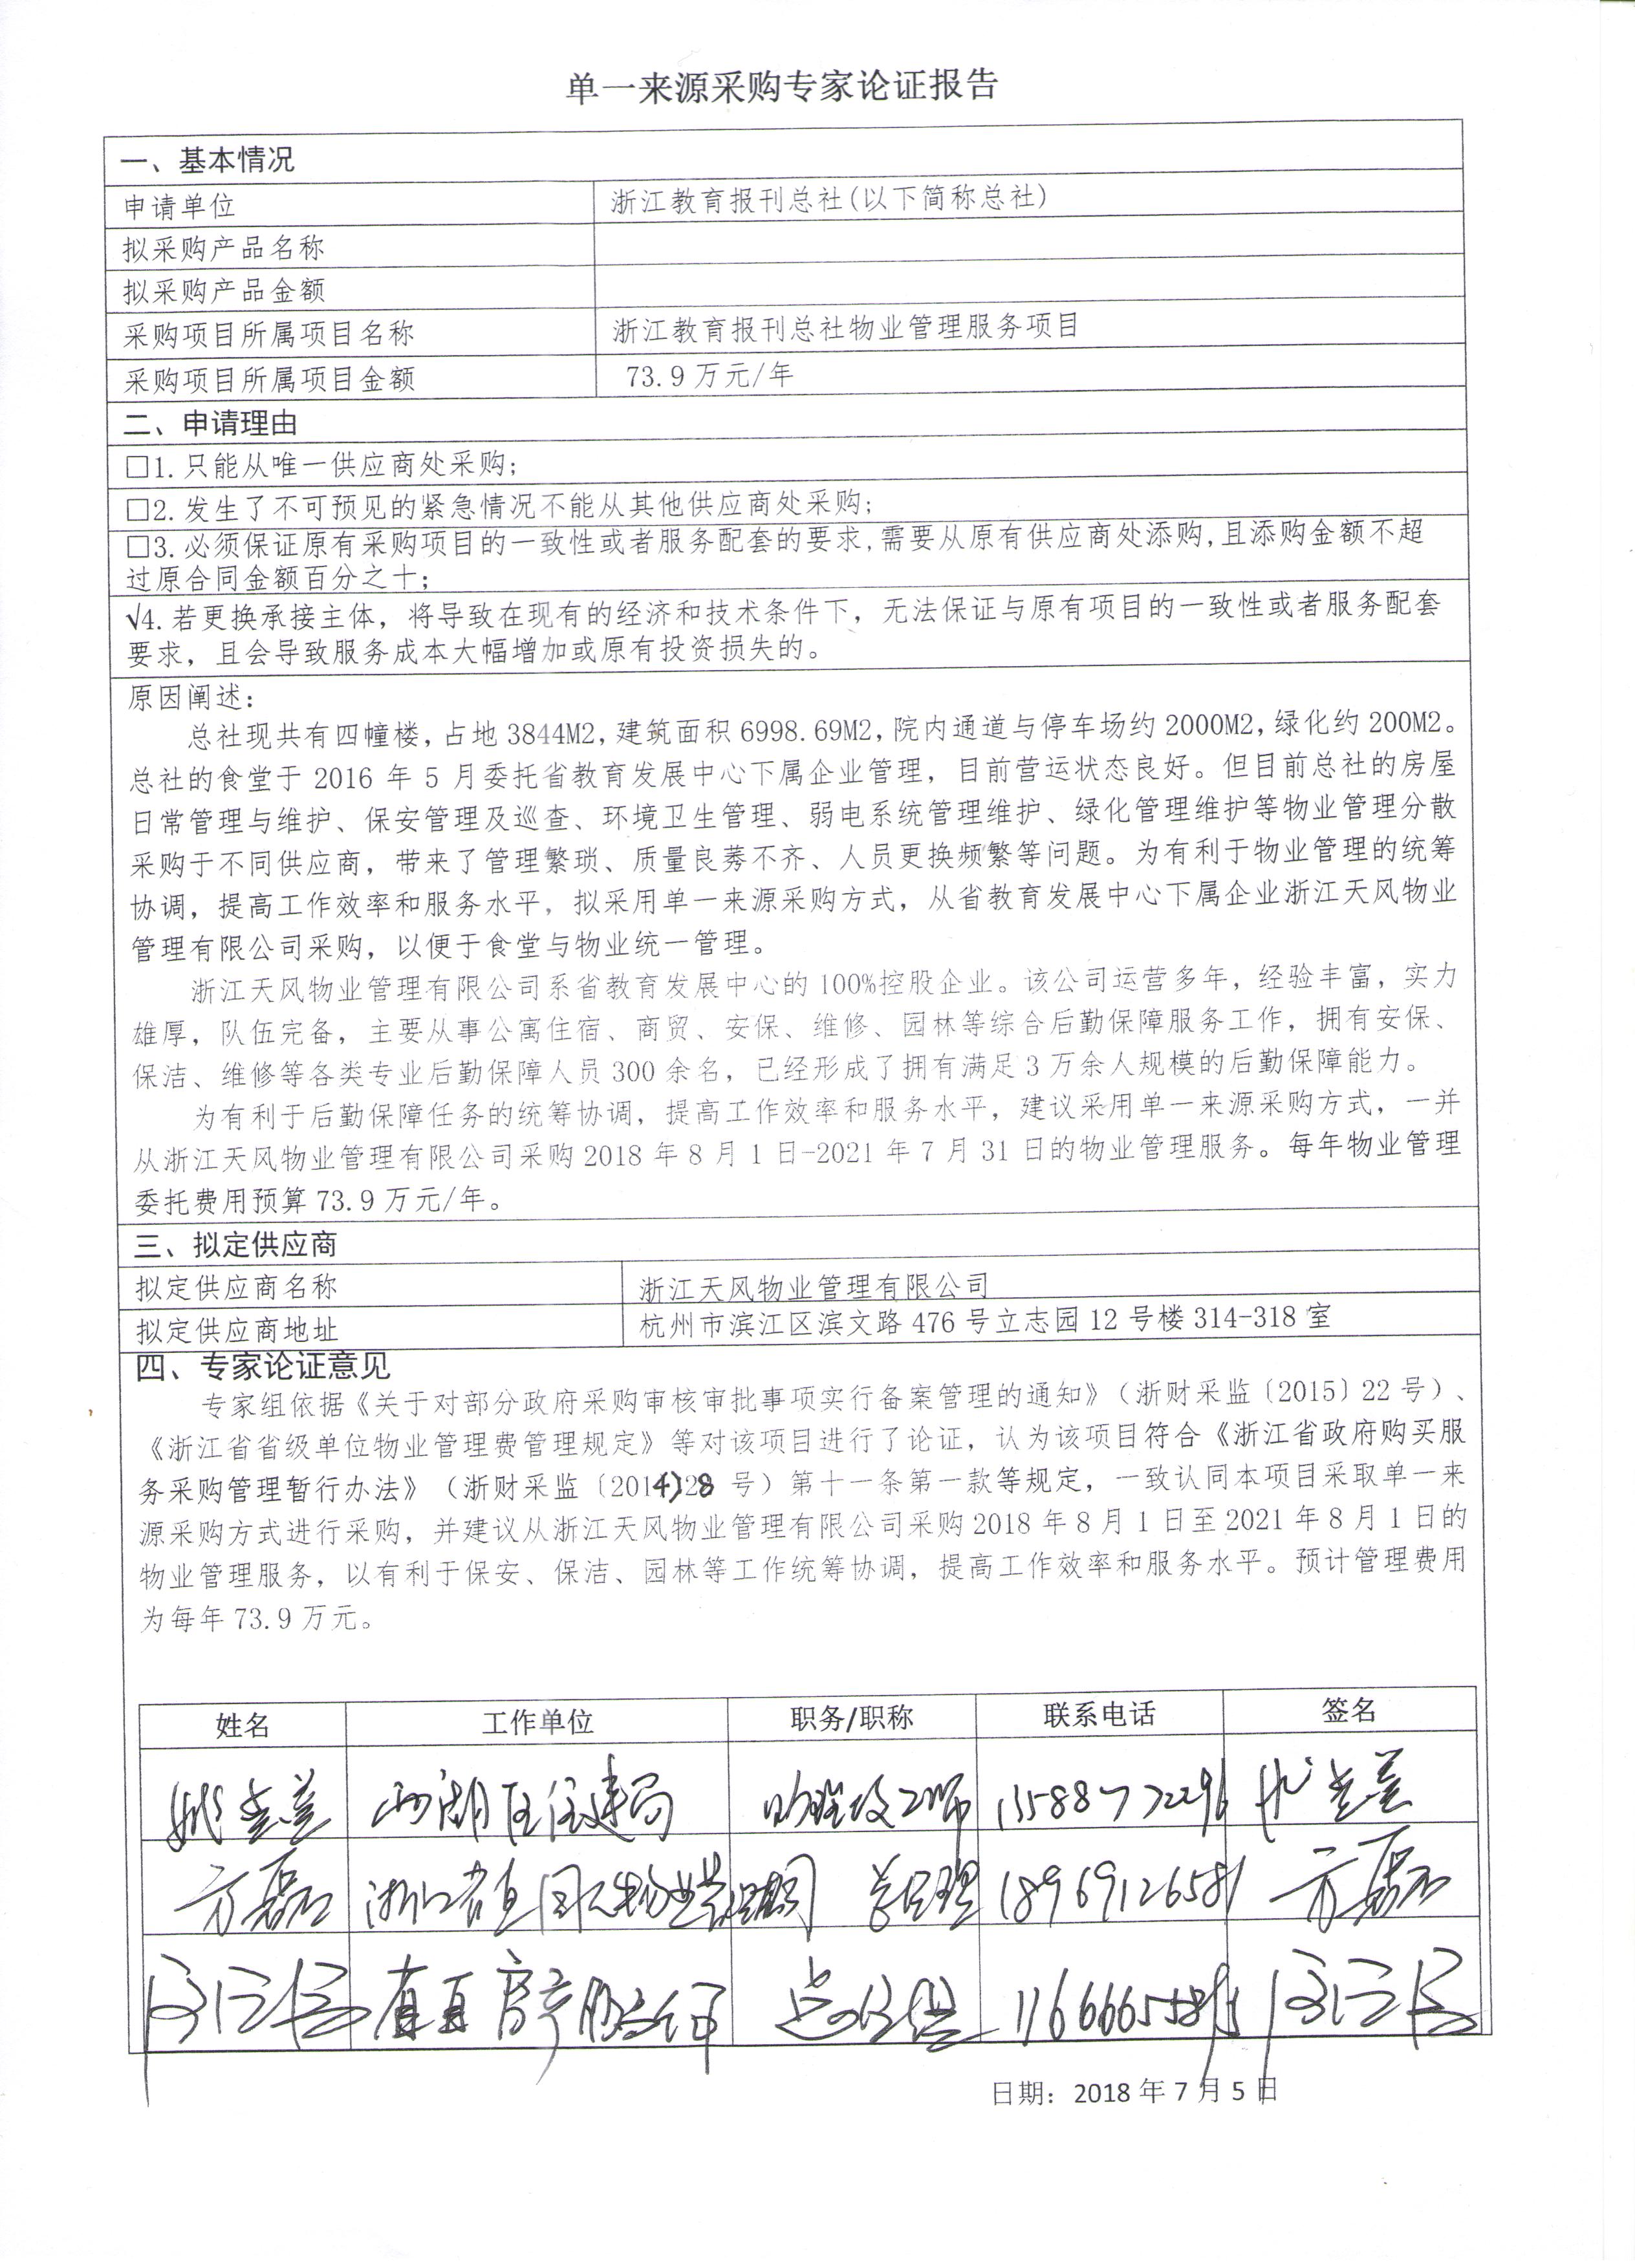 单一来源采购专家论证报告
一、基本情况
申请单位 浙江教育报刊总社(以下简称总社)
拟采购产品名称
拟采购产品金额
采购项目所属项目名称 浙江教育报刊总社物业管理服务项目
采购项目所属项目金额 73.9万元/年
二、申请理由
□1.只能从唯一供应商处采购;
□2.发生了不可预见的紧急情况不能从其他供应商处采购;
□3.必须保证原有采购项目的一致性或者服务配套的要求,需要从原有供应商处添购,且添购金额不超
过原合同金额百分之十;
√4.若更换承接主体，将导致在现有的经济和技术条件下，无法保证与原有项目的一致性或者服务配套
要求，且会导致服务成本大幅增加或原有投资损失的。
原因阐述:
总社现共有四幢楼,占地3844M2,建筑面积6998.69M2,院内通道与停车场约2000M2,绿化约200M2。
总社的食堂于2016年5月委托省教育发展中心下属企业管理，目前营运状态良好。但目前总社的房屋
日常管理与维护、保安管理及巡查、环境卫生管理、弱电系统管理维护、绿化管理维护等物业管理分散
采购于不同供应商，带来了管理繁琐、质量良莠不齐、人员更换频繁等问题。为有利于物业管理的统筹
协调，提高工作效率和服务水平，拟采用单一来源采购方式，从省教育发展中心下属企业浙江天风物业
管理有限公司采购，以便于食堂与物业统一管理。
浙江天风物业管理有限公司系省教育发展中心的100%控股企业。该公司运营多年，经验丰富，实力
雄厚，队伍完备，主要从事公寓住宿、商贸、安保、维修、园林等综合后勤保障服务工作，拥有安保、
保洁、维修等各类专业后勤保障人员300余名，已经形成了拥有满足3万余人规模的后勤保障能力。
为有利于后勤保障任务的统筹协调，提高工作效率和服务水平，建议采用单一来源采购方式，一并
从浙江天风物业管理有限公司采购2018年8月1日-2021年7月31日的物业管理服务。每年物业管理
委托费用预算73.9万元/年。
三、拟定供应商
拟定供应商名称 浙江天风物业管理有限公司
拟定供应商地址 杭州市滨江区滨文路476号立志园12号楼314-318室
四、专家论证意见
专家组依据《关于对部分政府采购审核审批事项实行备案管理的通知》（浙财采监〔2015〕22号）、
《浙江省省级单位物业管理费管理规定》等对该项目进行了论证，认为该项目符合《浙江省政府购买服
务采购管理暂行办法》（浙财采监〔2014〕28号）第十一条第一款等规定，一致认同本项目采取单一来
源采购方式进行采购，并建议从浙江天风物业管理有限公司采购2018年8月1日至2021年8月1日的
物业管理服务，以有利于保安、保洁、园林等工作统筹协调，提高工作效率和服务水平。预计管理费用
为每年73.9万元。
姓名 工作单位 职务/职称 联系电话 签名
西湖区住建局 15888772296
方磊 总经理 18969126581 方磊
日期：2018年7月5日